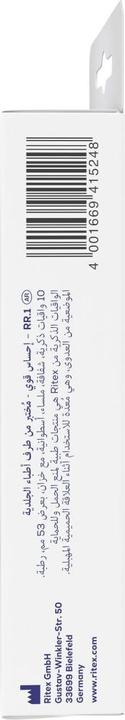 4 001669 415248
AR RR.1 – إحساس قوي - مُختبر من طرف أطباء الجلدية
10 واقيات ذكرية، شفافة، ملساء، أسطوانية، مع خزان، بعرض 53 مم، رطبة.
الواقيات الذكرية من Ritex هي منتجات طبية لمنع الحمل وللحماية
الموضعية من العدوى، وهي معدة للاستخدام أثناء العلاقة الحميمية المهبلية.
Ritex GmbH
Gustav-Winkler-Str. 50
33699 Bielefeld
Germany
www.ritex.com